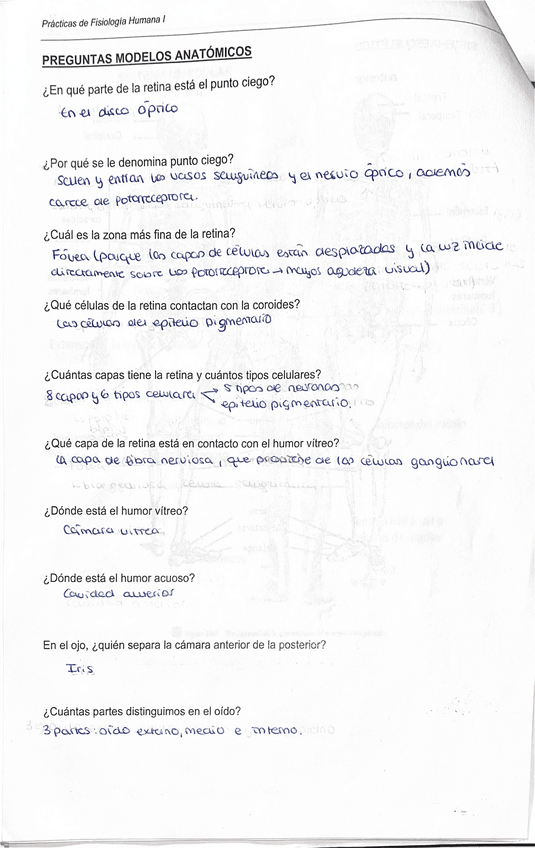 Prácticas de Fisiología Humana I
PREGUNTAS MODELOS ANATÓMICOS
¿En qué parte de la retina está el punto ciego?
En el disco óptico
¿Por qué se le denomina punto ciego?
Salen y entran los vasos sanguíneos y el nervio óptico, además
carece de fotorreceptores.
¿Cuál es la zona más fina de la retina?
Fóvea (porque las capas de células están desplazadas y la luz incide
directamente sobre los fotorreceptores → mayor agudeza visual)
¿Qué células de la retina contactan con la coroides?
Las células del epitelio pigmentario
¿Cuántas capas tiene la retina y cuántos tipos celulares?
8 capas y 6 tipos celulares → 5 tipos de neuronas
epitelio pigmentario.
¿Qué capa de la retina está en contacto con el humor vítreo?
la capa de fibra nerviosa, que procede de las células ganglionares
¿Dónde está el humor vítreo?
Cámara vítrea
¿Dónde está el humor acuoso?
Cavidad anterior
En el ojo, ¿quién separa la cámara anterior de la posterior?
Iris
¿Cuántas partes distinguimos en el oído?
3 partes: oído externo, medio e interno.